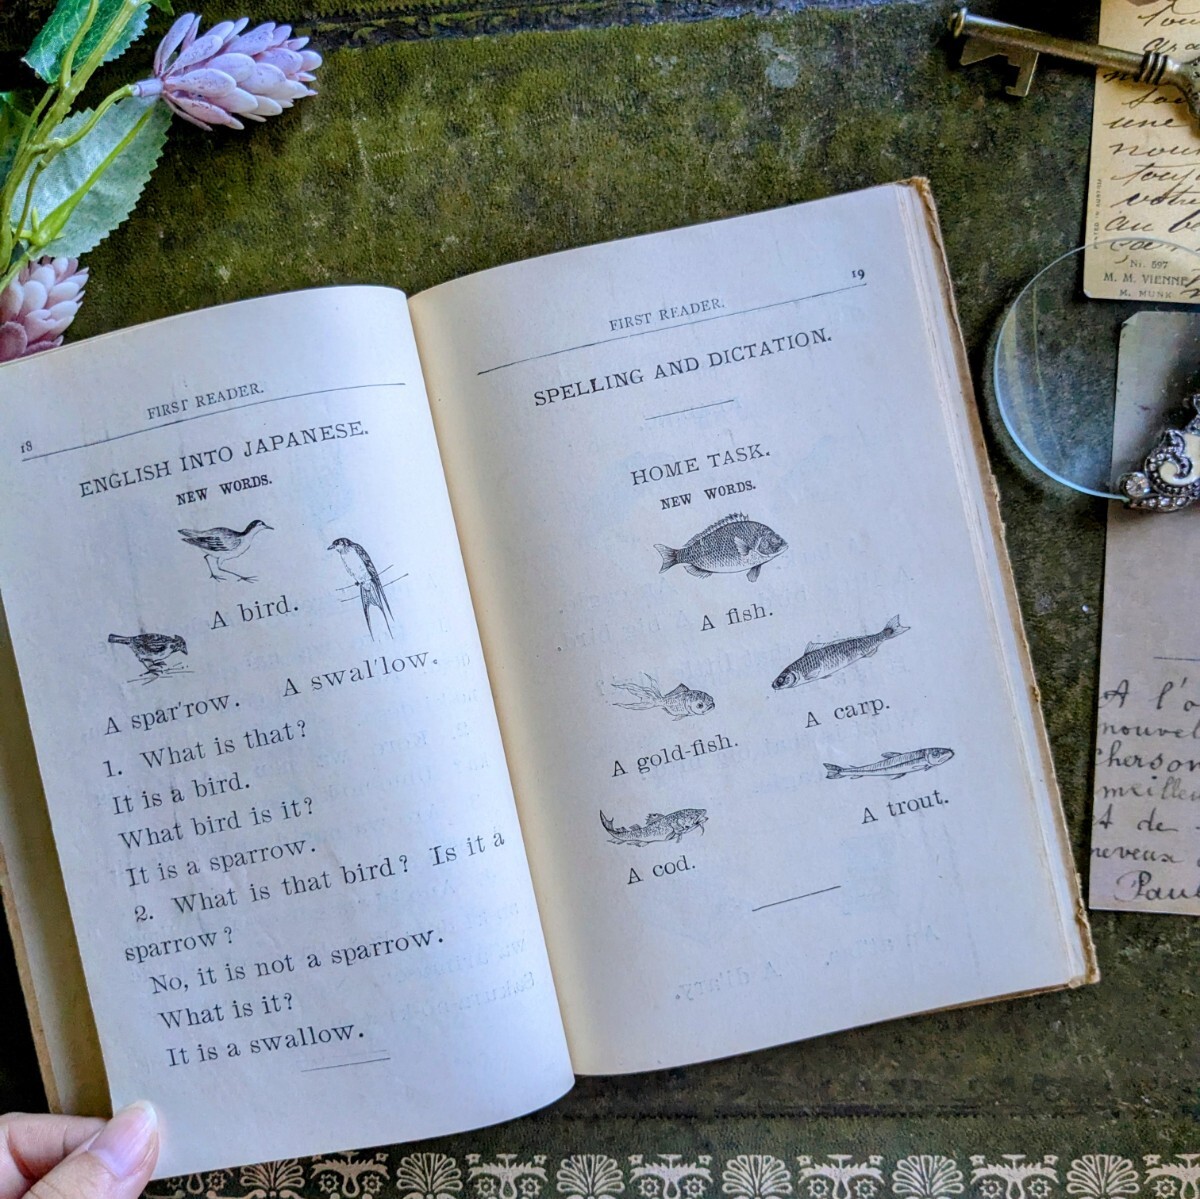 18
FIRST READER.
ENGLISH INTO JAPANESE.
NEW WORDS.
A bird.
A spar'row. A swal'low.
1. What is that?
It is a bird.
What bird is it?
It is a sparrow.
2. What is that bird? Is it a
sparrow?
No, it is not a sparrow.
What is it?
It is a swallow.
19
FIRST READER.
SPELLING AND DICTATION.
HOME TASK.
NEW WORDS.
A fish.
A carp.
A gold-fish.
A trout.
A cod.
une
au
Nr. 597
M. M. VIENNE
M. MUNK
A l'
nouvel
A de
neveux
Paul